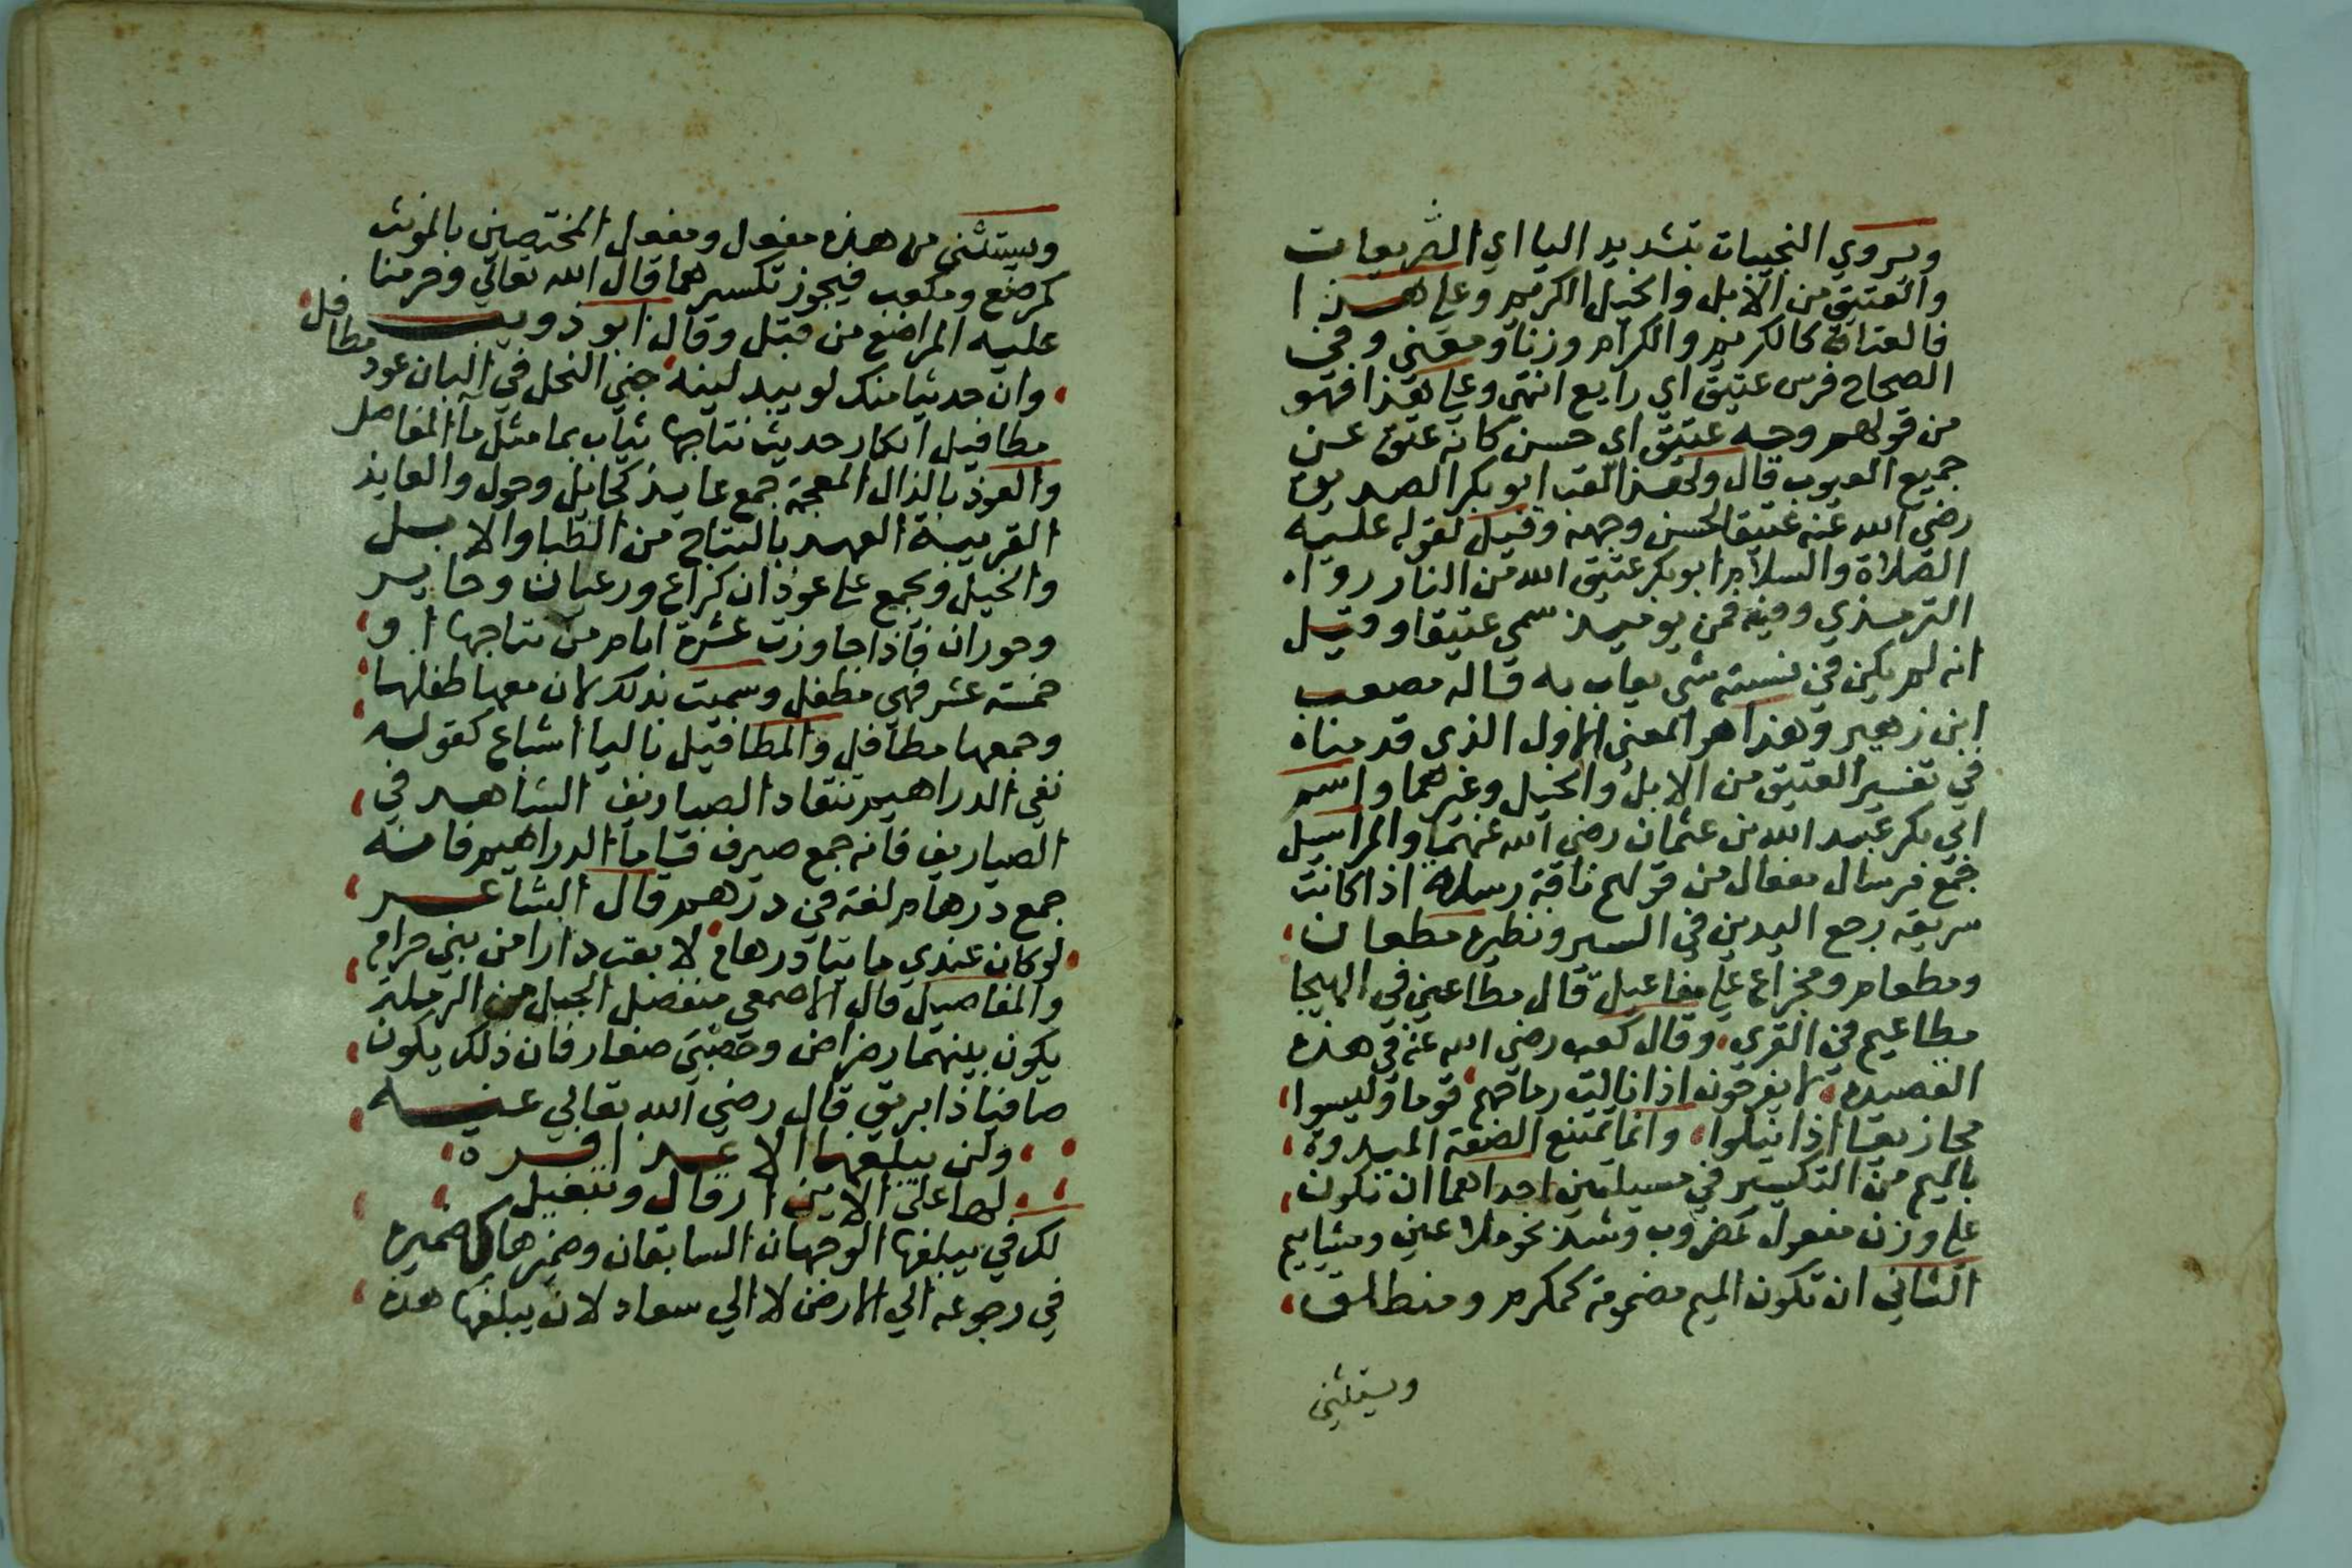 ويروي النجيبات بتشديد اليا اي السريعات
والعتيق من الابل والخيل الكريم وعلي هذا
فالعتاق كالكريم والكرام وزنا ومعني وفي
الصحاح فرس عتيق اي رايع انتهي وعلي هذا فهو
من قولهم وجه عتيق اي حسن كانه عتق عن
جميع العيوب قال ولهذا لقب ابو بكر الصديق
رضي الله عنه عتيقا لحسن وجهه وقيل لقوله عليه
الصلاة والسلام ابو بكر عتيق الله من النار رواه
الترمذي وفيه فمن يوميذ سمي عتيقا وقيل
انه لم يكن في نسبته شي يعاب به قاله مصعب
ابن زهير وهذا هو المعني الاول الذي قدمناه
في تفسير العتيق من الابل والخيل وغيرهما واسم
ابي بكر عبد الله بن عثمان رضي الله عنهما والمراسيل
جمع مرسال مفعال من قولهم ناقة رسلة اذا كانت
سريعة رجع اليدين في السير ونظيره مطعان
ومطعام ومخراع علي مفاعيل قال مطاعين في الهيجا
مطاعيم في القري وقال كعب رضي الله عنه في هذه
القصيدة لا يفرحون اذا نالت رماحهم قوما وليسوا
مجازيعا اذا نيلوا وانما تمتنع الصفة المبدوة
بالميم من التكسير في مسيلتين احداهما ان تكون
علي وزن مفعول كمضروب وشذ نحو ملاعين ومشاييم
الثاني ان تكون الميم مضمومة كمكرم ومنطلق
ويستثني
ويستثني من هذه مفعل ومفعل المختصين بالمونث
كمرضع ومكعب فيجوز تكسيرهما قال الله تعالي وحرمنا
عليه المراضع من قبل وقال ابو ذويب
وان حديثا منك لو يبدلينه جني النحل في البان عوذ مطافل
مطافيل ابكار حديث نتاجها تشاب بما مثل ما المفاصل
والعوذ بالذال المعجمة جمع عايذ كحايل وحول والعايذ
القريبة العهد بالنتاج من الظبا والابل
والخيل ويجمع علي عوذان كراع ورعيان وحاير
وحوران فاذا جاوزت عشرة ايام من نتاجها او
خمسة عشر فهي مطفل وسميت بذلك لان معها طفلها
وجمعها مطافل والمطافيل باليا اشباع كقوله
نفي الدراهيم تنقاد الصياريف الشاهد في
الصياريف فانه جمع صيرف فاما الدراهيم فانه
جمع درهام لغة في درهم قال الشاعر
لو كان عندي مايتا درهام لابتعت دارا من بني حرام
والمفاصيل قال الاصمعي منفصل الجبل من الرملة
يكون بينهما رضراض وحصي صغار فان ذلك يكون
صافيا ذا بريق قال رضي الله تعالي عنه
ولن يبلغها الا عذافرة
لها علي الاين ارقال وتبغيل
لك في يبلغها الوجهان السابقان وضميرها كضميره
في رجوعه الي الارض لا الي سعاد لان يبلغها هذه